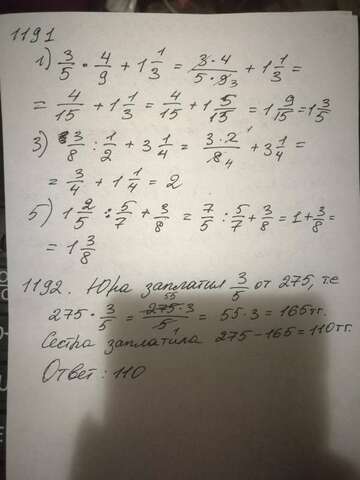 1191
1) 3/5 · 4/9 + 1 1/3 = 3·4/5·9 3 + 1 1/3 =
= 4/15 + 1 1/3 = 4/15 + 1 5/15 = 1 9/15 = 1 3/5
3) 3/8 : 1/2 + 3 1/4 = 3·2 1/8 4 + 3 1/4 =
= 3/4 + 1 1/4 = 2
5) 1 2/5 : 5/7 + 3/8 = 7/5 : 5/7 + 3/8 = 1 + 3/8 =
= 1 3/8
1192. Юра заплатил 3/5 от 275, т.е
275 · 3/5 = 55 275·3/5 1 = 55·3 = 165тг.
Сестра заплатила 275-165=110тг.
Ответ: 110